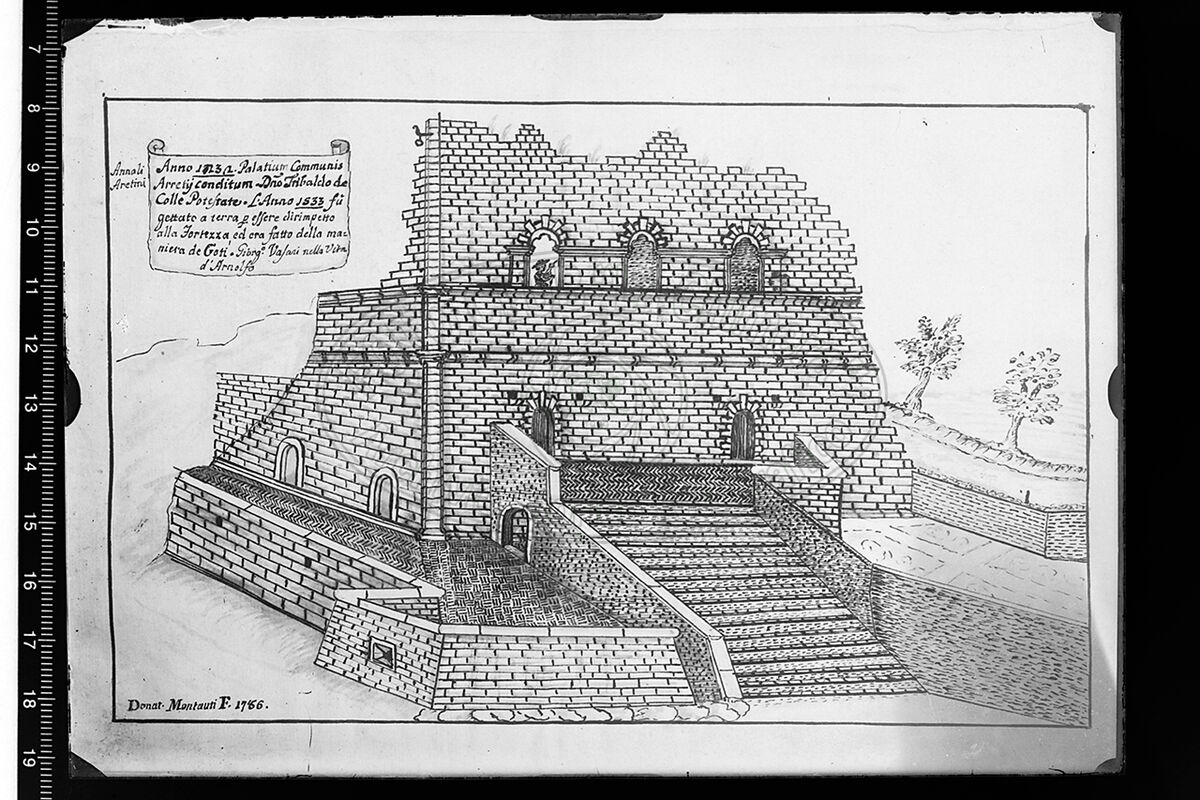 Annali
Aretini
Anno 1232. Palatium Communis
Arretij conditum. Dño Tribaldo de
Colle Potestate. L'Anno 1533 fù
gettato a terra p essere dirimpetto
alla Fortezza ed era fatto della ma-
niera de Goti. Giorg.º Vasari nella Vita
d'Arnolfo
Donat. Montauti F. 1786.
7
8
9
10
11
12
13
14
15
16
17
18
19